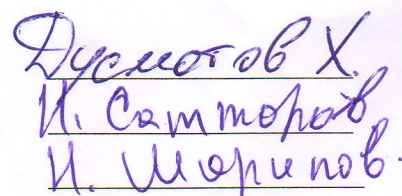 Дусматов Х.
И. Сатторов
И. Шарипов.